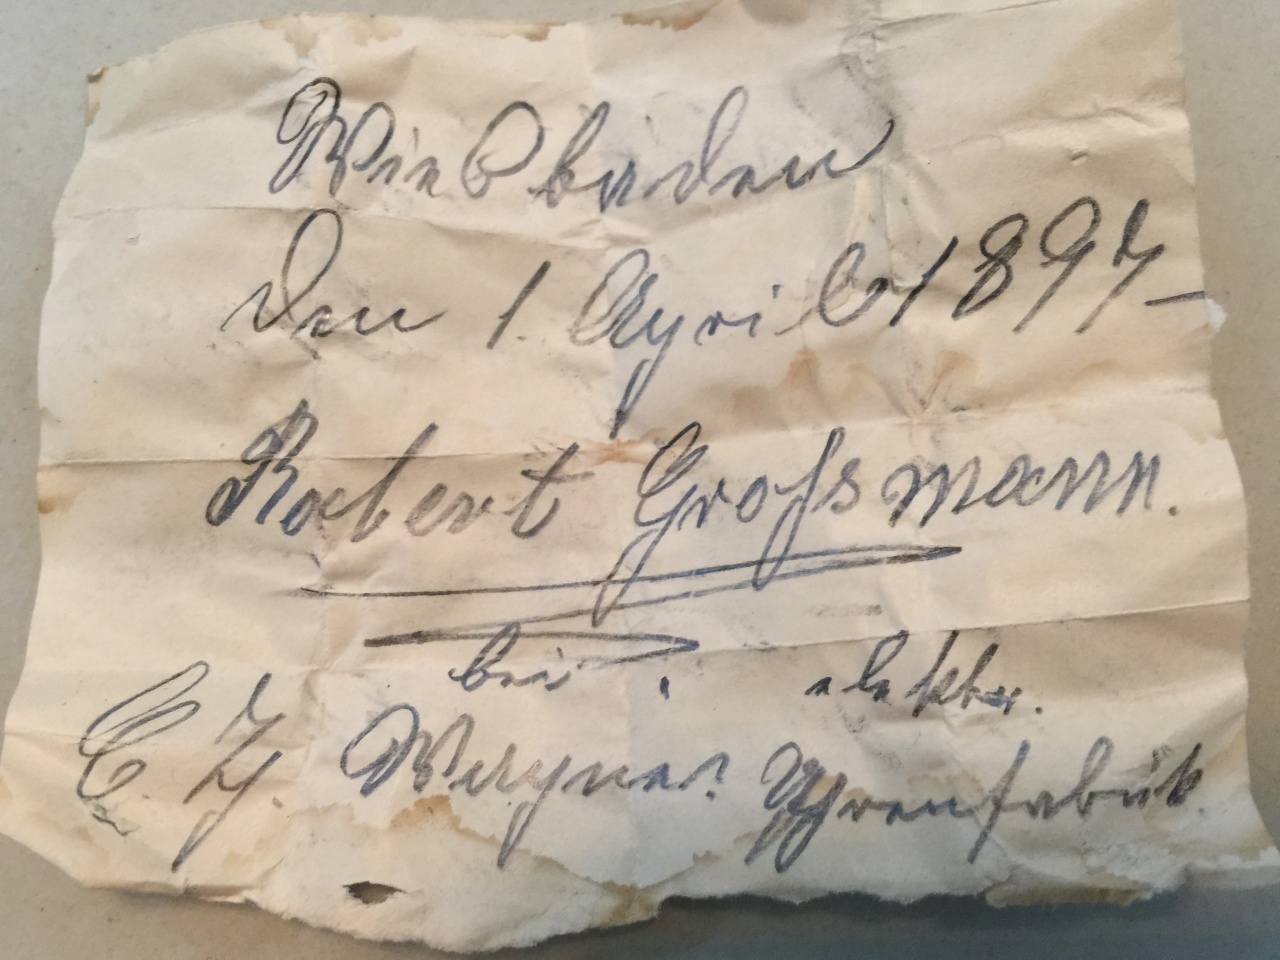 Wiesbaden
den 1. April 1897
Robert Großmann.
bei elektr.
C. T. Wagner Uhrenfabrik.